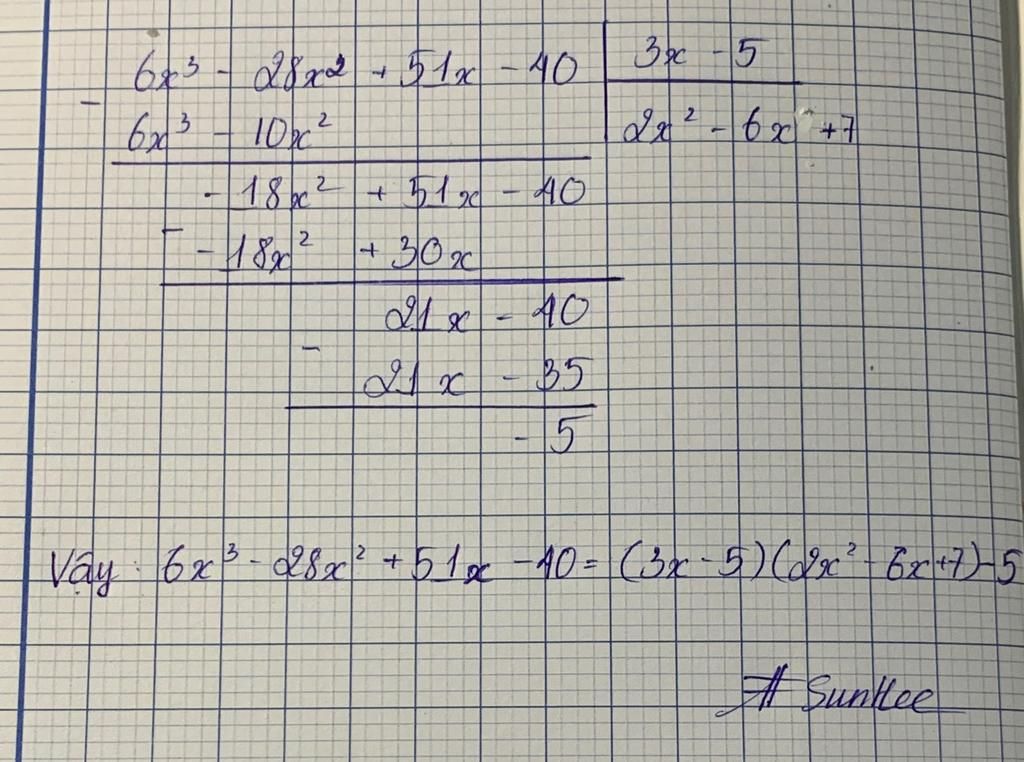 6x³ - 28x² + 51x - 40 | 3x - 5
- 6x³ - 10x² | 2x² - 6x + 7
- 18x² + 51x - 40
- - 18x² + 30x
21x - 40
- 21x - 35
- 5
Vậy: 6x³ - 28x² + 51x - 40 = (3x - 5)(2x² - 6x + 7) - 5
# SunHee